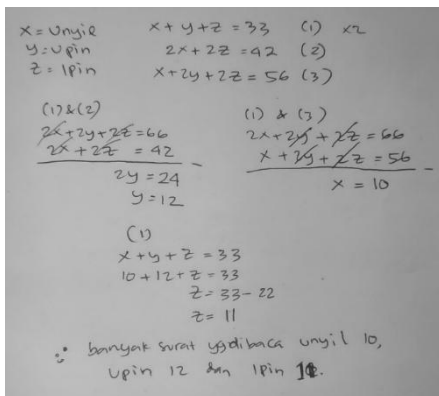 x = Unyil
y = Upin
z = Ipin
x + y + z = 33 (1) x2
2x + 2z = 42 (2)
x + 2y + 2z = 56 (3)
(1) & (2)
2x + 2y + 2z = 66
2x + 2z = 42 -
2y = 24
y = 12
(1) & (3)
2x + 2y + 2z = 66
x + 2y + 2z = 56 -
x = 10
(1)
x + y + z = 33
10 + 12 + z = 33
z = 33 - 22
z = 11
∴ banyak surat yg dibaca unyil 10,
Upin 12 dan Ipin 11.